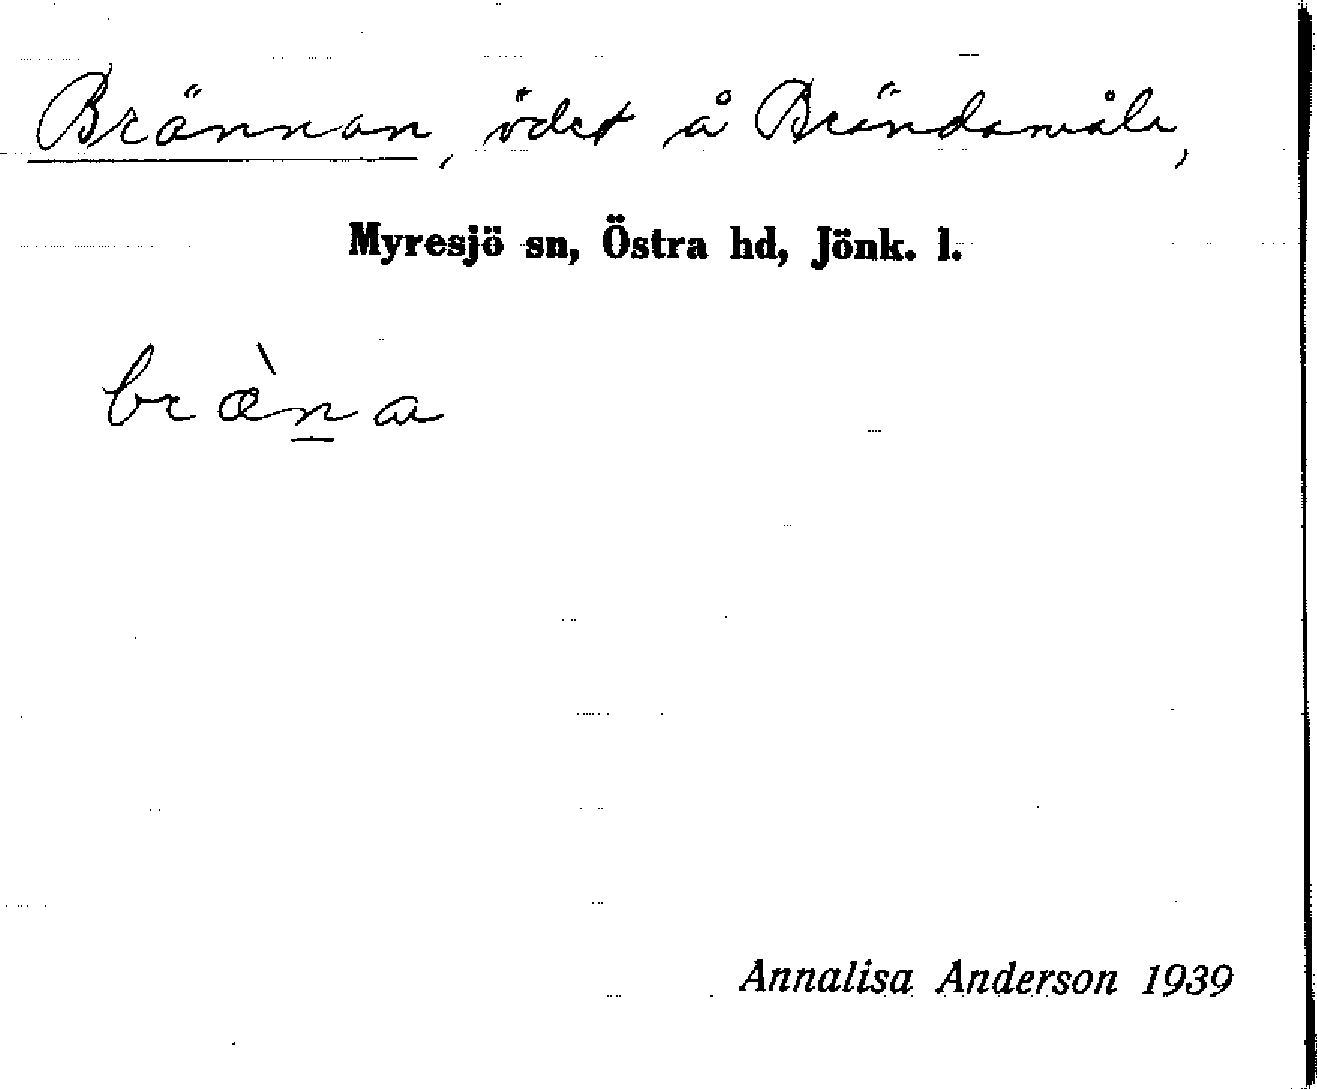 Brännan, ödet å Brändamåla,
Myresjö sn, Östra hd, Jönk. l.
bræ̀n̲a
Annalisa Anderson 1939